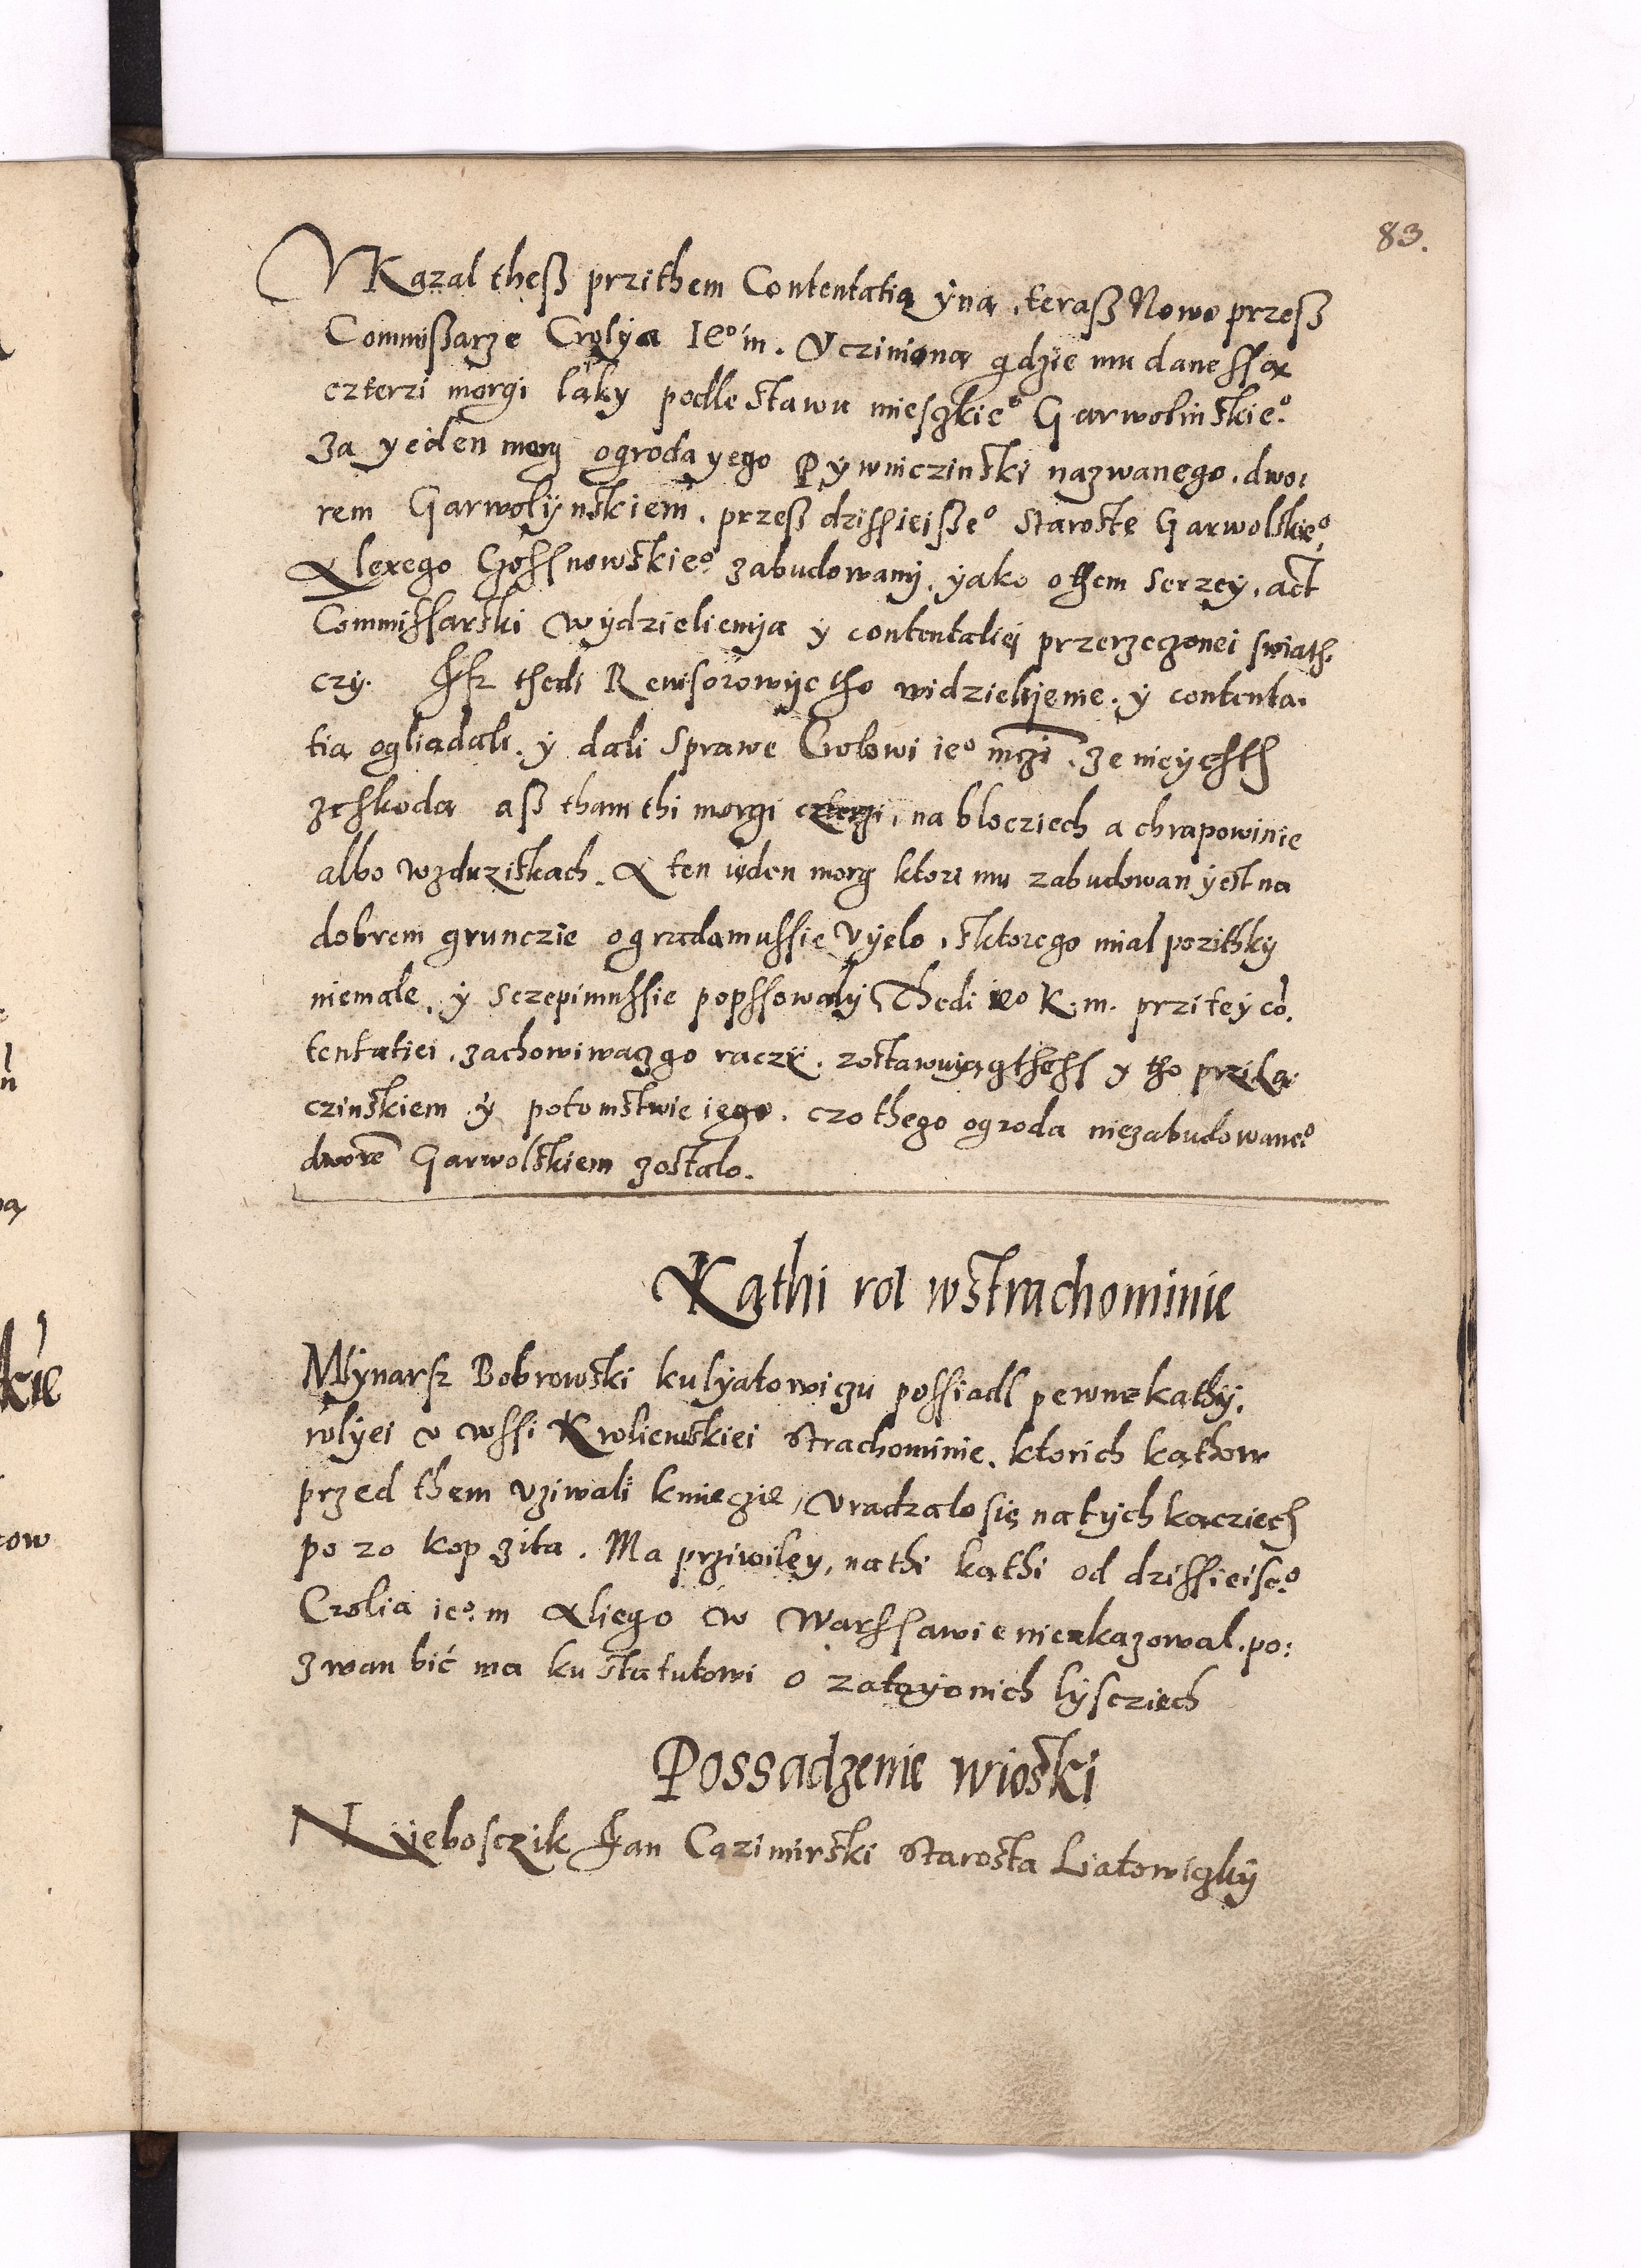 83.
VKazal theß przithem Contentatią ÿną, teraß Nowo przeß
Commißarze Crolÿa Ieº m. Vcziniona gdzie mu daneſſą
czterzi morgi łąky podle Stawu mieſzkieº Garwolinſkieº
Za yeden morg ogroda yego Pÿwniczinſki nazwanego, dwo⸗
rem Garwolÿnſkiem, przeß dziſſieiſßeº Staroſte Garwolſkieº
Alexego Goſſnowſkieº zabudowanÿ, ÿako othem Serzeÿ, act
Commiſſarſki wÿdzielienÿa ÿ contentatiej przerzeczonei ſwiath
czÿ. Iſz thedi Rewiſorowÿe tho widzielijenie, ÿ contenta⸗
tią ogliadali, ÿ dali Sprawe Crolowi ieº mczi, ze nieÿeſth
zeſkodą aß tham thi morgi czterzi, na blocziech a chrapowinie
albo wzduziſkach. A ten ieden morg ktori mu zabudowan ÿeſt na
dobrem grunczie ogrodamuſſie vÿelo, ſktorego mial pozithkÿ
niemale, ÿ Sczepimuſſie popſſowalÿ Thedi ieº K. m. przi teÿ cō
tentatiei, zachowiwacz go raczÿ, zoſtawuiącz theſſ y tho przi Lą
czinſkiem ÿ potomſtwie iego, czo thego ogroda niezabudowaneº
dworē Garwolſkiem zoſtalo.
Kąthi rol wStrachominie
Młÿnarſz Bobrowſki kulÿatowiczu poſſiadl pewne kąthÿ,
rolÿei v wſſi Kroliewſkiei Strachominie, ktorich kąthow
przed them vziwali kmieczie, vradzalo się natÿch kącziech
po 20 kop zita. Ma prziwiley, na thi kąthi od dziſſieiſeº
Crolia ieº m Aliego w Warſſawie nieukazowal, po:
zwan bić ma ku Statutowi o zatayonich lÿſcziech
Possadzenie wioſki
Nÿeboſczik Jan Cazimirſki Staroſta Liatowiczkÿ